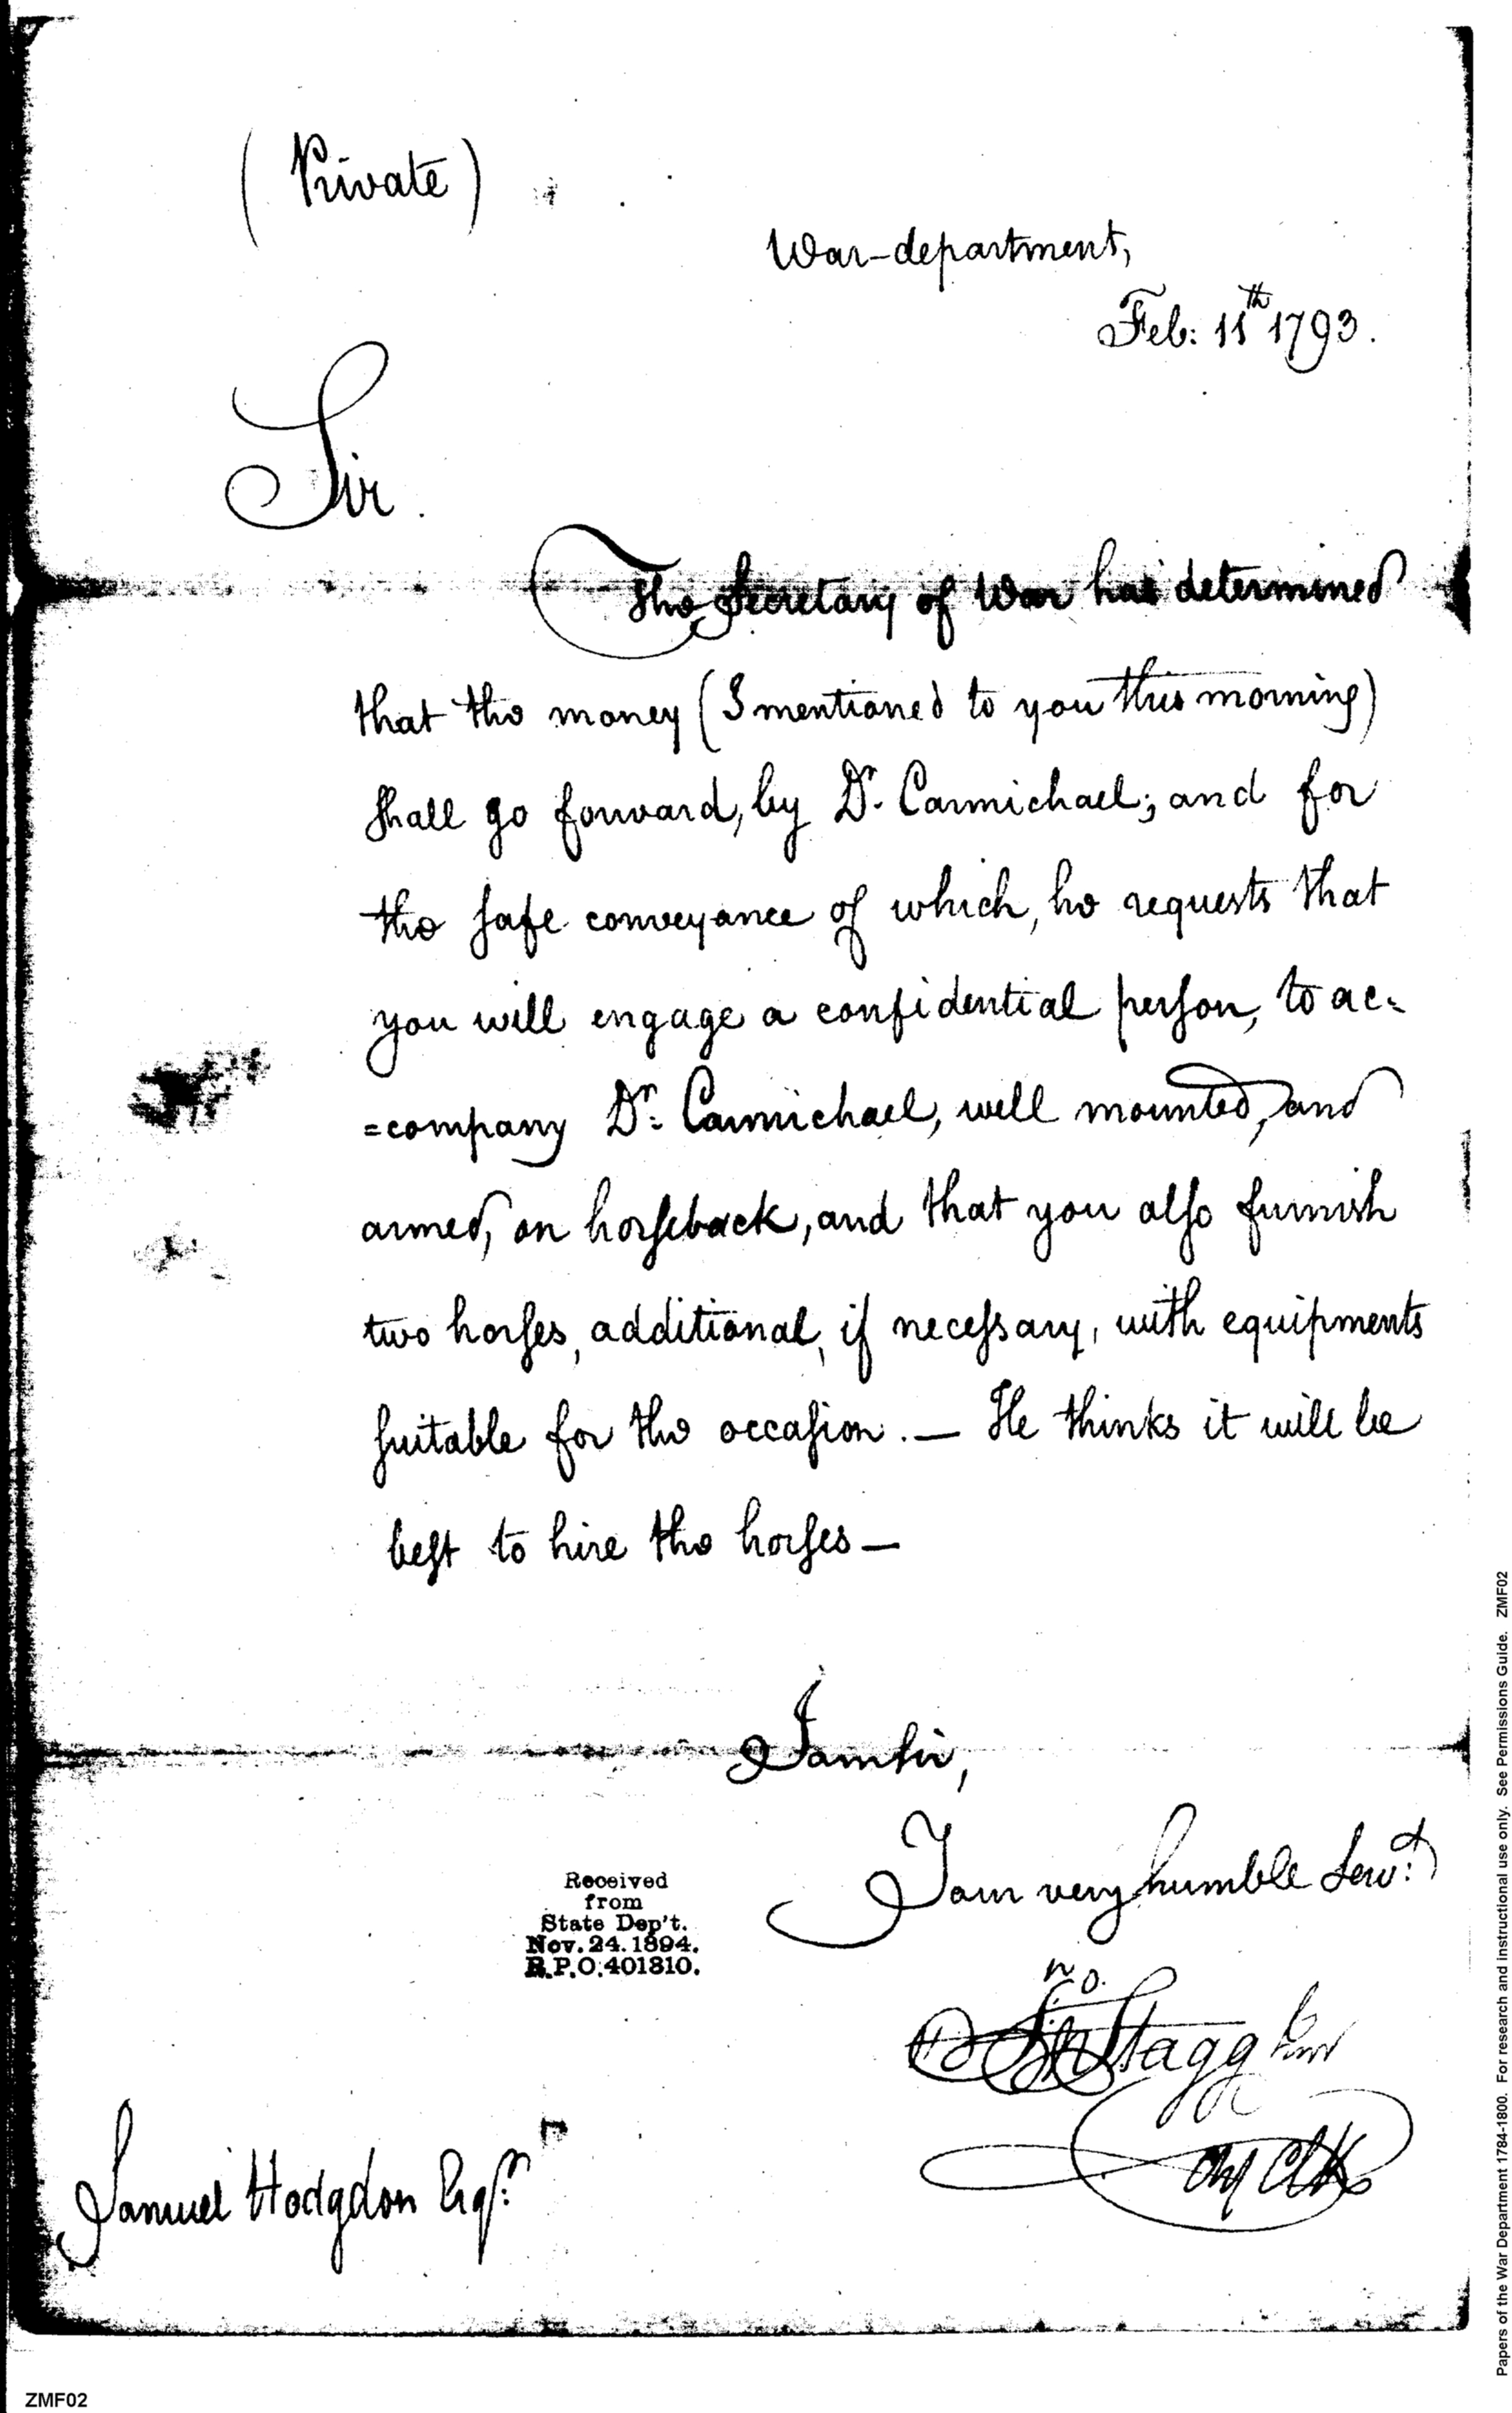 (Private)
War-department,
Feb: 11th 1793.
Sir.
The Secretary of War has determined
that the money (I mentioned to you this morning)
shall go forward, by Dr. Carmichael; and for
the safe conveyance of which, he requests that
you will engage a confidential person, to ac-
=company Dr. Carmichael, well mounted, and
armed, on horseback, and that you also furnish
two horses, additional, if necessary, with equipments
suitable for the occasion. — He thinks it will be
best to hire the horses —
I am sir,
Your very humble Servt.
Jno. Stagg Junr
Chf Clk
Received
from
State Dep't.
Nov. 24. 1894.
R.P.O. 401310.
Samuel Hodgdon Esqr.
Papers of the War Department 1784-1800. For research and instructional use only. See Permissions Guide. ZMF02
ZMF02